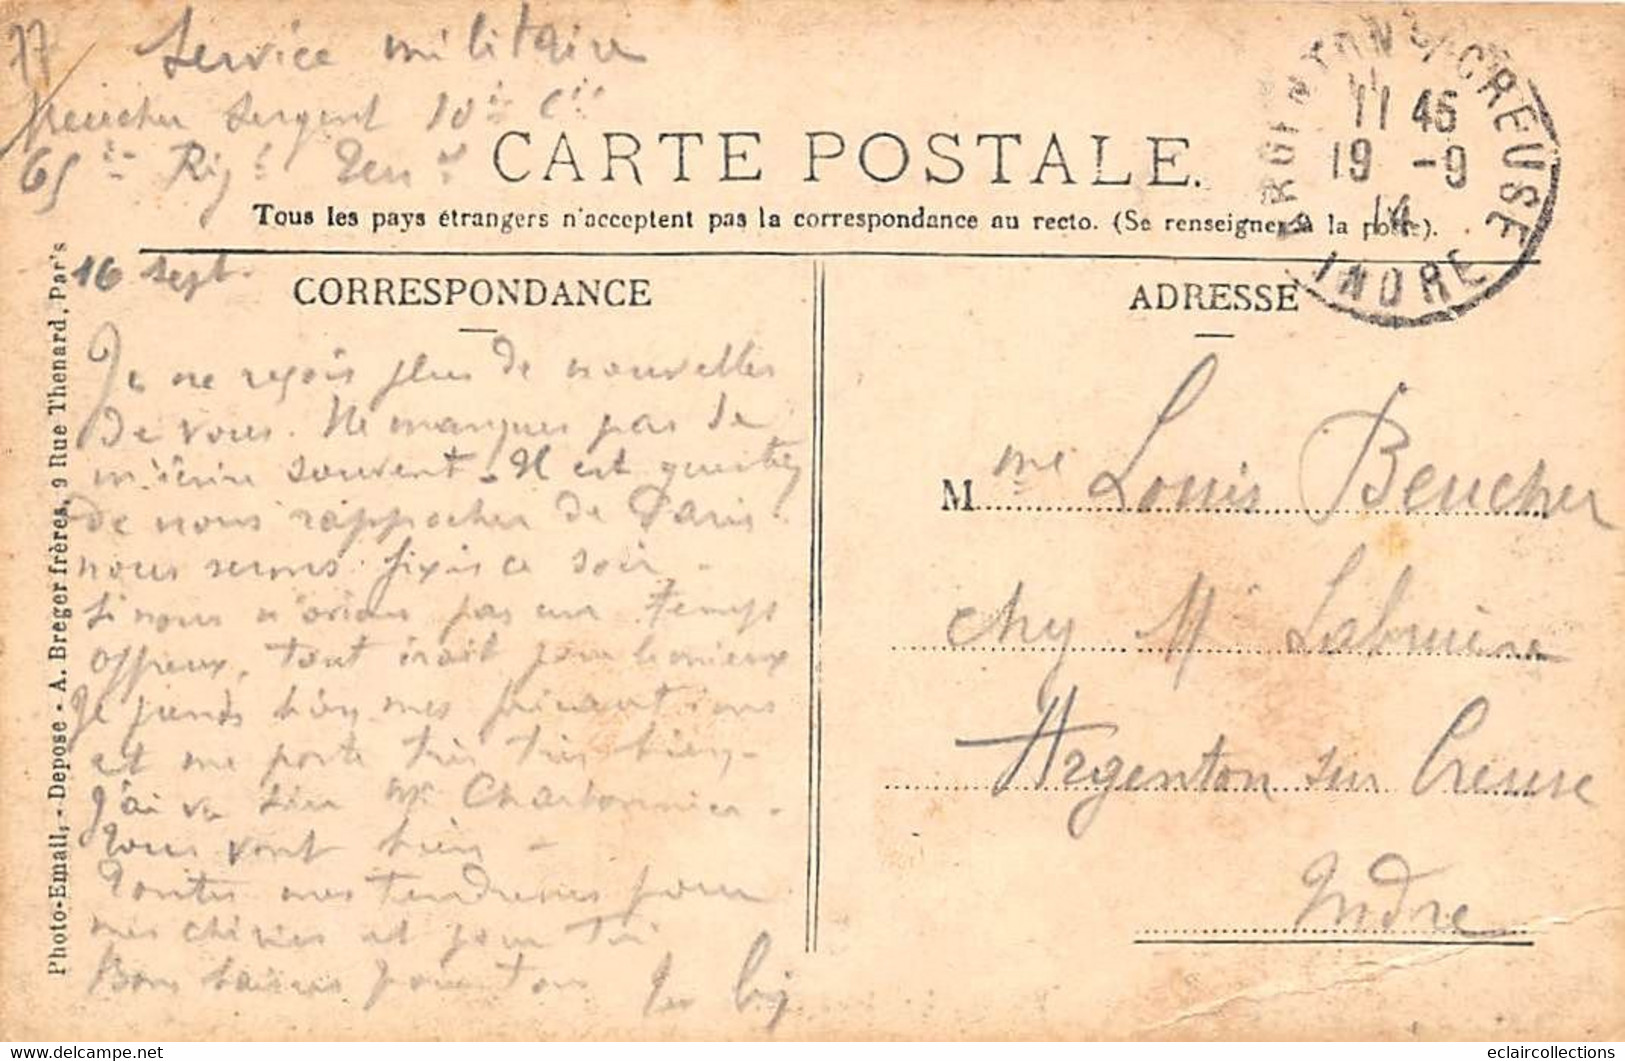 77
Service militaire
Beucher Sergent 10è Cie
65è Rég
CARTE POSTALE.
Tous les pays étrangers n'acceptent pas la correspondance au recto. (Se renseigner à la poste).
ARGENTON S/ CREUSE
11 45
19 -9
14
INDRE
16 sept.
CORRESPONDANCE
Je ne reçois plus de nouvelles
de vous. Ne manques pas de
m'écrire souvent. Il est question
de nous rapprocher de Paris.
nous serons fixés ce soir.
Si nous n'avions pas un temps
affreux, tout irait pour le mieux
Je prends bien mes précautions
et me porte très très bien.
J'ai vu Mr Charbonnier.
Tous vont bien.
Toutes mes tendresses pour
mes chéries et pour toi
Bons baisers pour tous
ADRESSE
Mme Louis Beucher
chez Mr Labruière
Argenton sur Creuse
Indre
Photo-Email, - Déposé - A. Breger frères, 9 Rue Thenard, Paris
eclaircollections